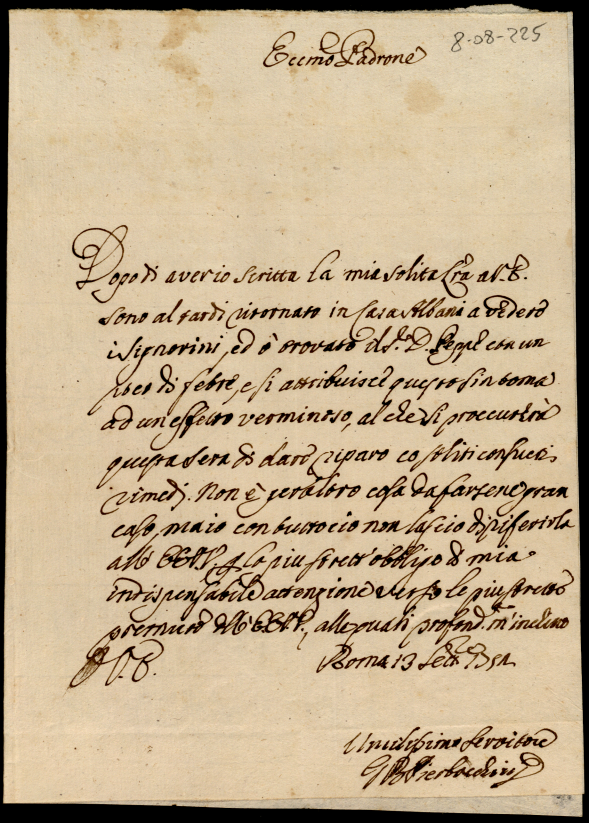 8-08-225
Eccmo Padrone
Dopo di aver io scritta la mia solita Lrã a V. E.
sono al tardi ritornato in Casa Albani a vedere
i Signorini, ed ò trovato il Sr. D. Peppe con un
poco di febre, e si attribuisce questo sintoma
ad un effetto verminoso, al che si proccurerà
questa sera di dare riparo co soliti consueti
rimedj. Non è per altro cosa da farsene gran
caso, ma io con tutto ciò non lascio di riferirla
all' EE. VV. p lo più strett' obbligo di mia
indispensabile attenzione verso le più strette
premure dell' EE. VV., alle quali profond.te m' inchino
D V. E. Roma 13 Sett.
Umilissimo Servitore